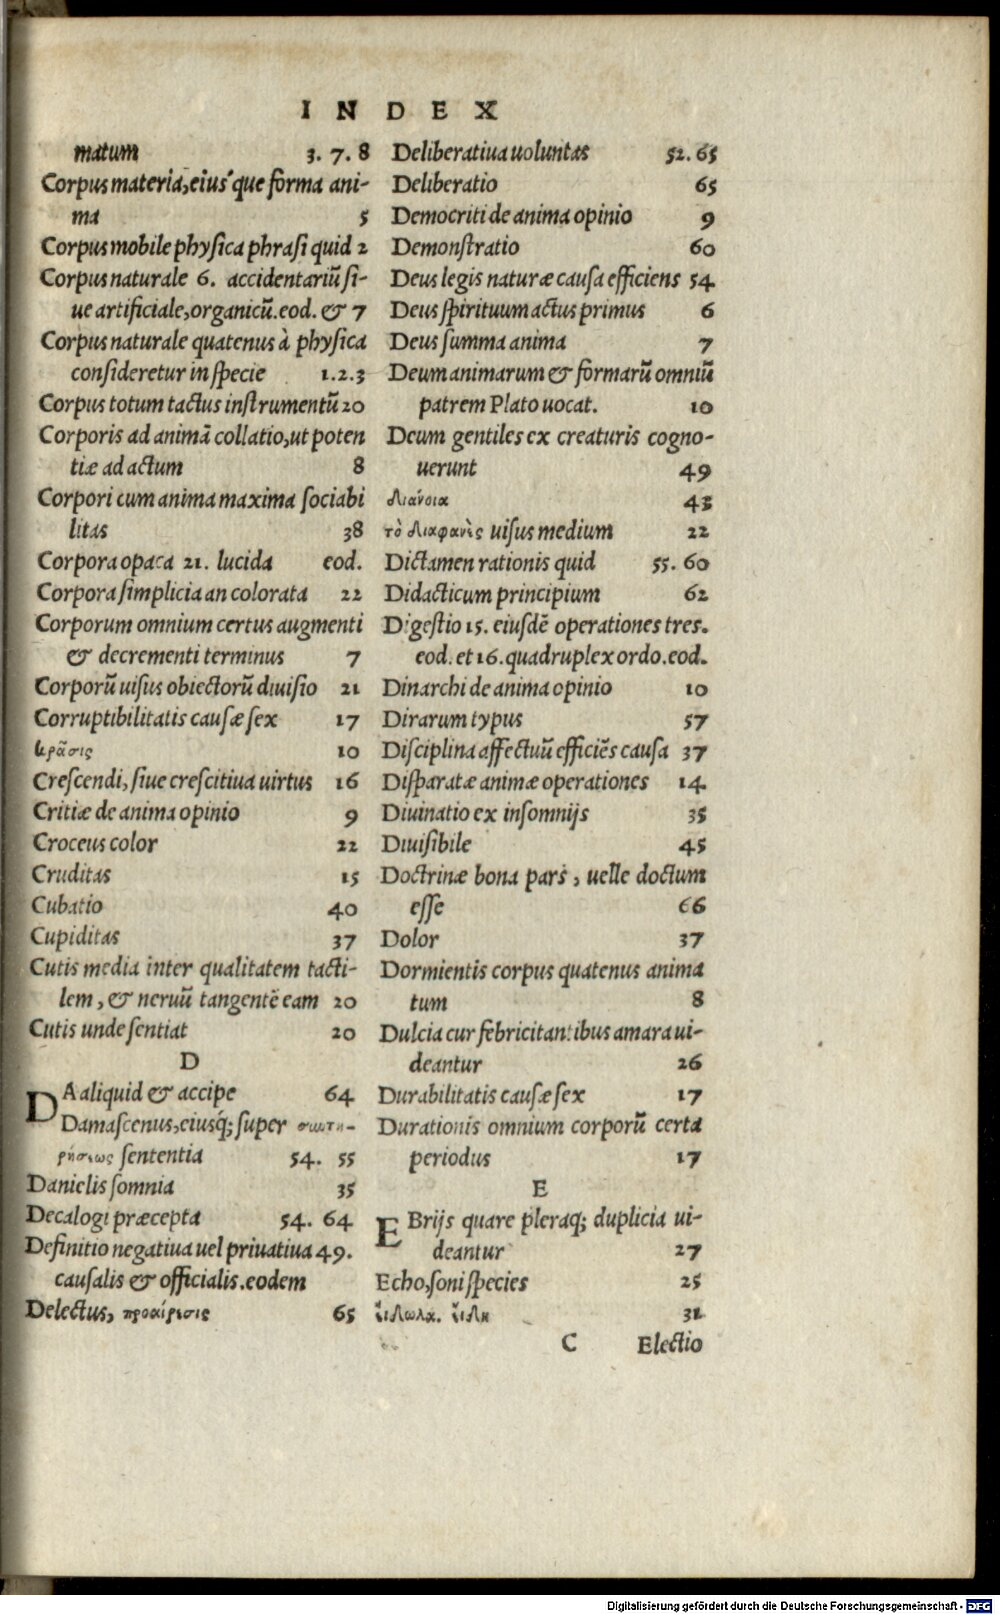 INDEX
matum 3. 7. 8
Corpus materia, eius'que forma ani-
ma 5
Corpus mobile physica phrasi quid 2
Corpus naturale 6. accidentariũ si-
ue artificiale, organicũ. eod. & 7
Corpus naturale quatenus à physica
consideretur in specie 1.2.3
Corpus totum tactus instrumentũ 20
Corporis ad animã collatio, ut poten
tiæ ad actum 8
Corpori cum anima maxima sociabi
litas 38
Corpora opaca 21. lucida eod.
Corpora simplicia an colorata 22
Corporum omnium certus augmenti
& decrementi terminus 7
Corporũ uisus obiectorũ diuisio 21
Corruptibilitatis causæ sex 17
κρᾶσις 10
Crescendi, siue crescitiua uirtus 16
Critiæ de anima opinio 9
Croceus color 22
Cruditas 15
Cubatio 40
Cupiditas 37
Cutis media inter qualitatem tacti-
lem, & neruũ tangentẽ eam 20
Cutis unde sentiat 20
D
DA aliquid & accipe 64
Damascenus, eiusq́; super σωτη-
ρήσεως sententia 54. 55
Danielis somnia 35
Decalogi præcepta 54. 64
Definitio negatiua uel priuatiua 49.
causalis & officialis. eodem
Delectus, προαίρεσις 65
Deliberatiua uoluntas 52. 65
Deliberatio 65
Democriti de anima opinio 9
Demonstratio 60
Deus legis naturæ causa efficiens 54
Deus spirituum actus primus 6
Deus summa anima 7
Deum animarum & formarũ omniũ
patrem Plato uocat. 10
Deum gentiles ex creaturis cogno-
uerunt 49
διάνοια 43
τὸ διαφανὲς uisus medium 22
Dictamen rationis quid 55. 60
Didacticum principium 62
Digestio 15. eiusdẽ operationes tres.
eod. et 16. quadruplex ordo. eod.
Dinarchi de anima opinio 10
Dirarum typus 57
Disciplina affectuũ efficiẽs causa 37
Disparatæ animæ operationes 14
Diuinatio ex insomnijs 35
Diuisibile 45
Doctrinæ bona pars, uelle doctum
esse 66
Dolor 37
Dormientis corpus quatenus anima
tum 8
Dulcia cur febricitantibus amara ui-
deantur 26
Durabilitatis causæ sex 17
Durationis omnium corporũ certa
periodus 17
E
EBrijs quare pleraq; duplicia ui-
deantur 27
Echo, soni species 25
εἴδωλα. εἴδη 31
C Electio
Digitalisierung gefördert durch die Deutsche Forschungsgemeinschaft - DFG